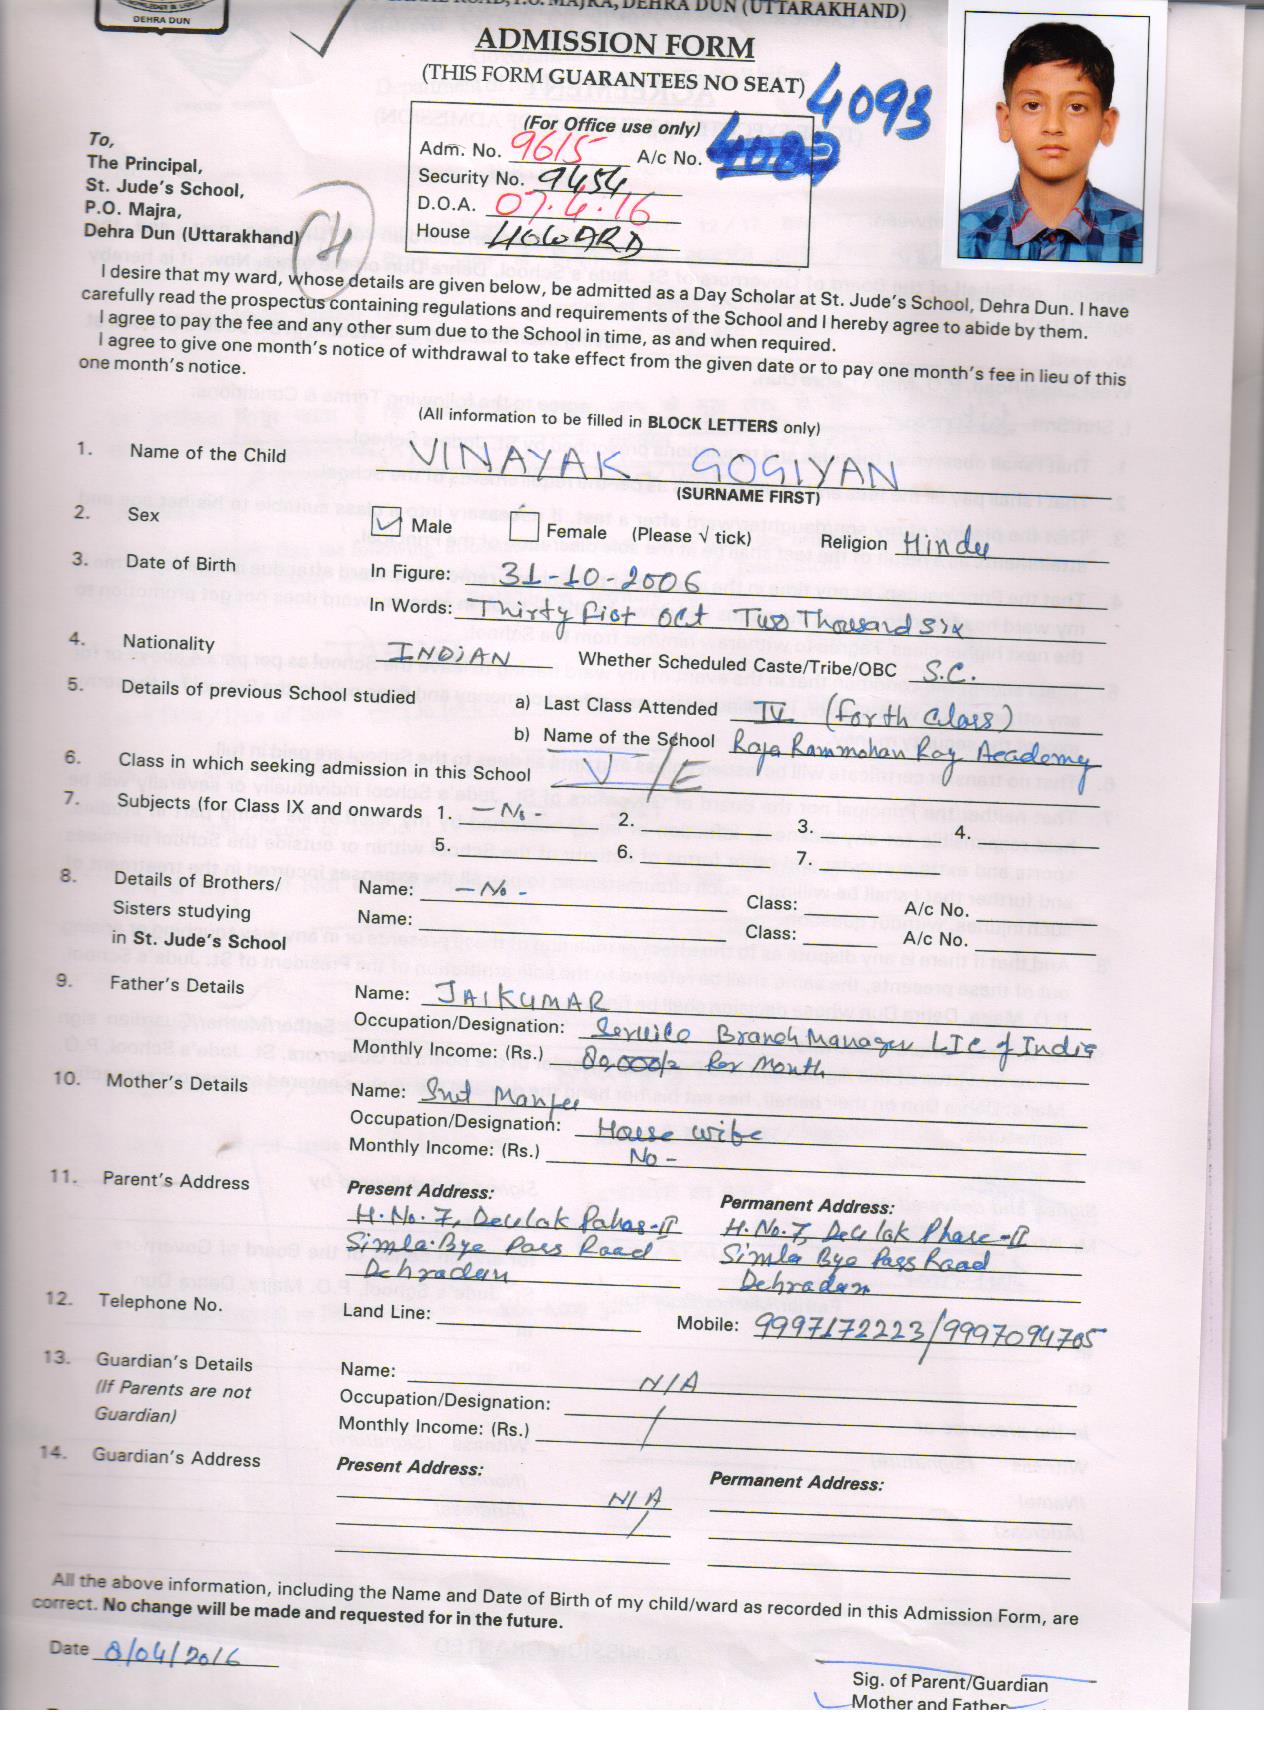 DEHRA DUN
ROAD, P.O. MAJRA, DEHRA DUN (UTTARAKHAND)
ADMISSION FORM
(THIS FORM GUARANTEES NO SEAT)
4093
(For Office use only)
Adm. No. 9615 A/c No.
Security No. 9454
D.O.A. 07.4.16
House HOWARD
To,
The Principal,
St. Jude's School,
P.O. Majra,
Dehra Dun (Uttarakhand)
I desire that my ward, whose details are given below, be admitted as a Day Scholar at St. Jude's School, Dehra Dun. I have
carefully read the prospectus containing regulations and requirements of the School and I hereby agree to abide by them.
I agree to pay the fee and any other sum due to the School in time, as and when required.
I agree to give one month's notice of withdrawal to take effect from the given date or to pay one month's fee in lieu of this
one month's notice.
(All information to be filled in BLOCK LETTERS only)
1. Name of the Child VINAYAK GOGIYAN
(SURNAME FIRST)
2. Sex Male Female (Please √ tick) Religion Hindu
3. Date of Birth In Figure: 31-10-2006
In Words: Thirty First Oct Two Thousand Six
4. Nationality INDIAN Whether Scheduled Caste/Tribe/OBC S.C.
5. Details of previous School studied a) Last Class Attended IV (Forth Class)
b) Name of the School Raja Rammohan Roy Academy
6. Class in which seeking admission in this School V/E
7. Subjects (for Class IX and onwards 1. - No - 2. 3. 4.
5. 6. 7.
8. Details of Brothers/ Name: - No - Class: A/c No.
Sisters studying Name: Class: A/c No.
in St. Jude's School
9. Father's Details Name: JAIKUMAR
Occupation/Designation: Service Branch Manager LIC of India
Monthly Income: (Rs.) 80,000/- Per Month
10. Mother's Details Name: Smt Manju
Occupation/Designation: House wife
Monthly Income: (Rs.) No -
11. Parent's Address Present Address: Permanent Address:
H.No.7, Devlok Phase-II H.No.7, Devlok Phase-II
Simla Bye Pass Road Simla Bye Pass Road
Dehradun Dehradun
12. Telephone No. Land Line: Mobile: 9997172223/9997094705
13. Guardian's Details Name: N/A
(If Parents are not Occupation/Designation:
Guardian) Monthly Income: (Rs.)
14. Guardian's Address Present Address: Permanent Address:
N/A
All the above information, including the Name and Date of Birth of my child/ward as recorded in this Admission Form, are
correct. No change will be made and requested for in the future.
Date 8/04/2016
Sig. of Parent/Guardian
Mother and Father